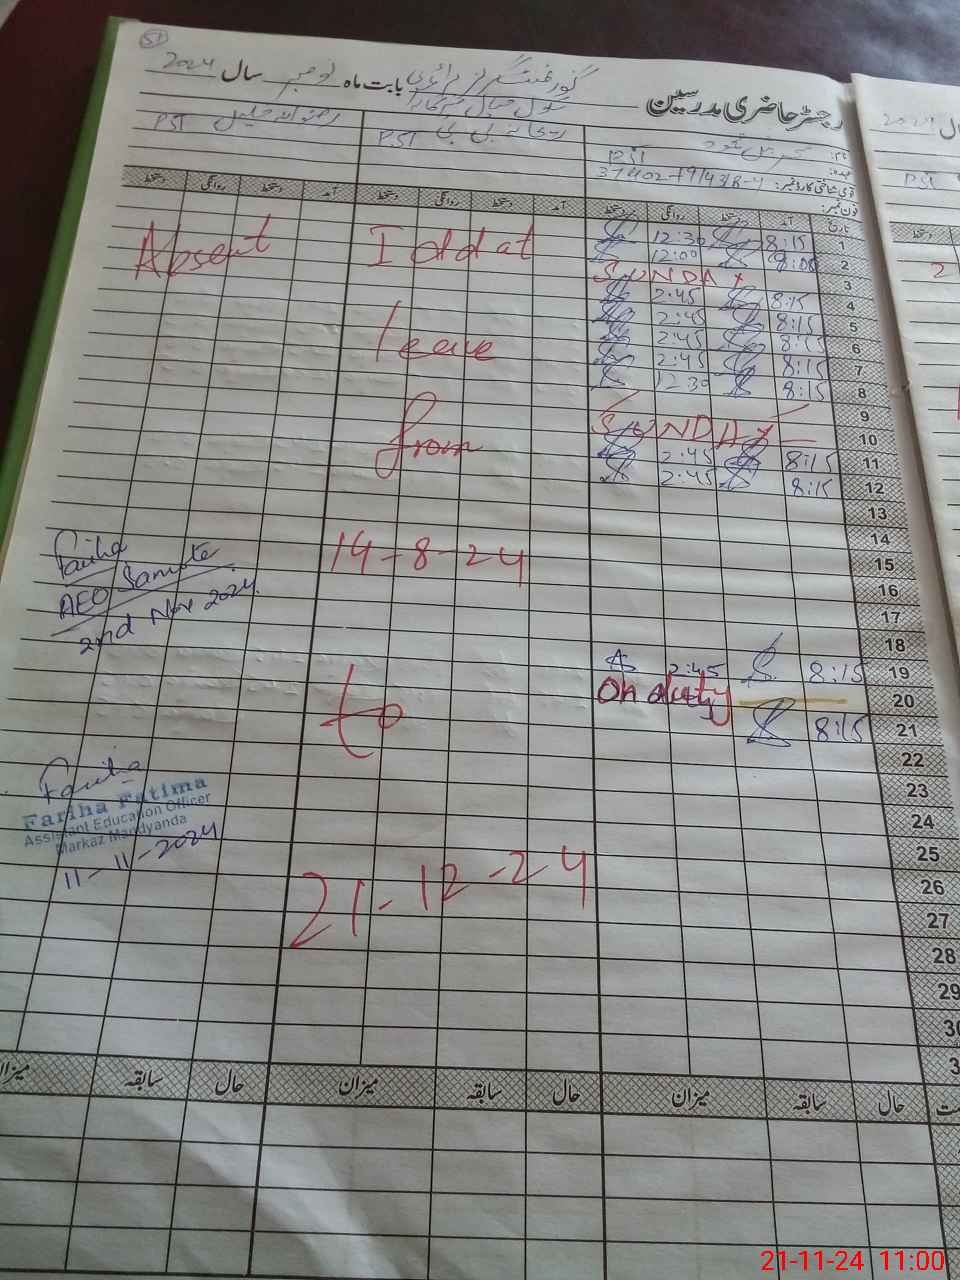 51
رجسٹر حاضری مدرسین گورنمنٹ گرلز پرائمری بابت ماہ نومبر سال 2024
سکول
نام:
عہدہ: PST
قومی شناختی کارڈ نمبر:
فون نمبر:
PST
PST
تاریخ آمد دستخط روانگی دستخط آمد دستخط روانگی دستخط آمد دستخط روانگی دستخط
1 8:15 12:30
2 8:00 12:00
3 SUNDAY
4 8:15 2:45
5 8:15 2:45
6 8:15 2:45
7 8:15 2:45
8 8:15 12:30
9
10 SUNDAY
11 8:15 2:45
12 8:15 2:45
13
14
15
16
17
18
19 8:15 2:45
20 On duty
21 8:15
22
23
24
25
26
27
28
29
30
Iddat
leave
from
14-8-24
to
21-12-24
Absent
Fariha
AEO
2nd Nov 2024
Fariha
Fariha Fatima
Assistant Education Officer
Markaz Mandyanda
11-11-2024
حال سابقہ میزان حال سابقہ میزان حال سابقہ میزان
2024
PST
دستخط
2
21-11-24 11:00